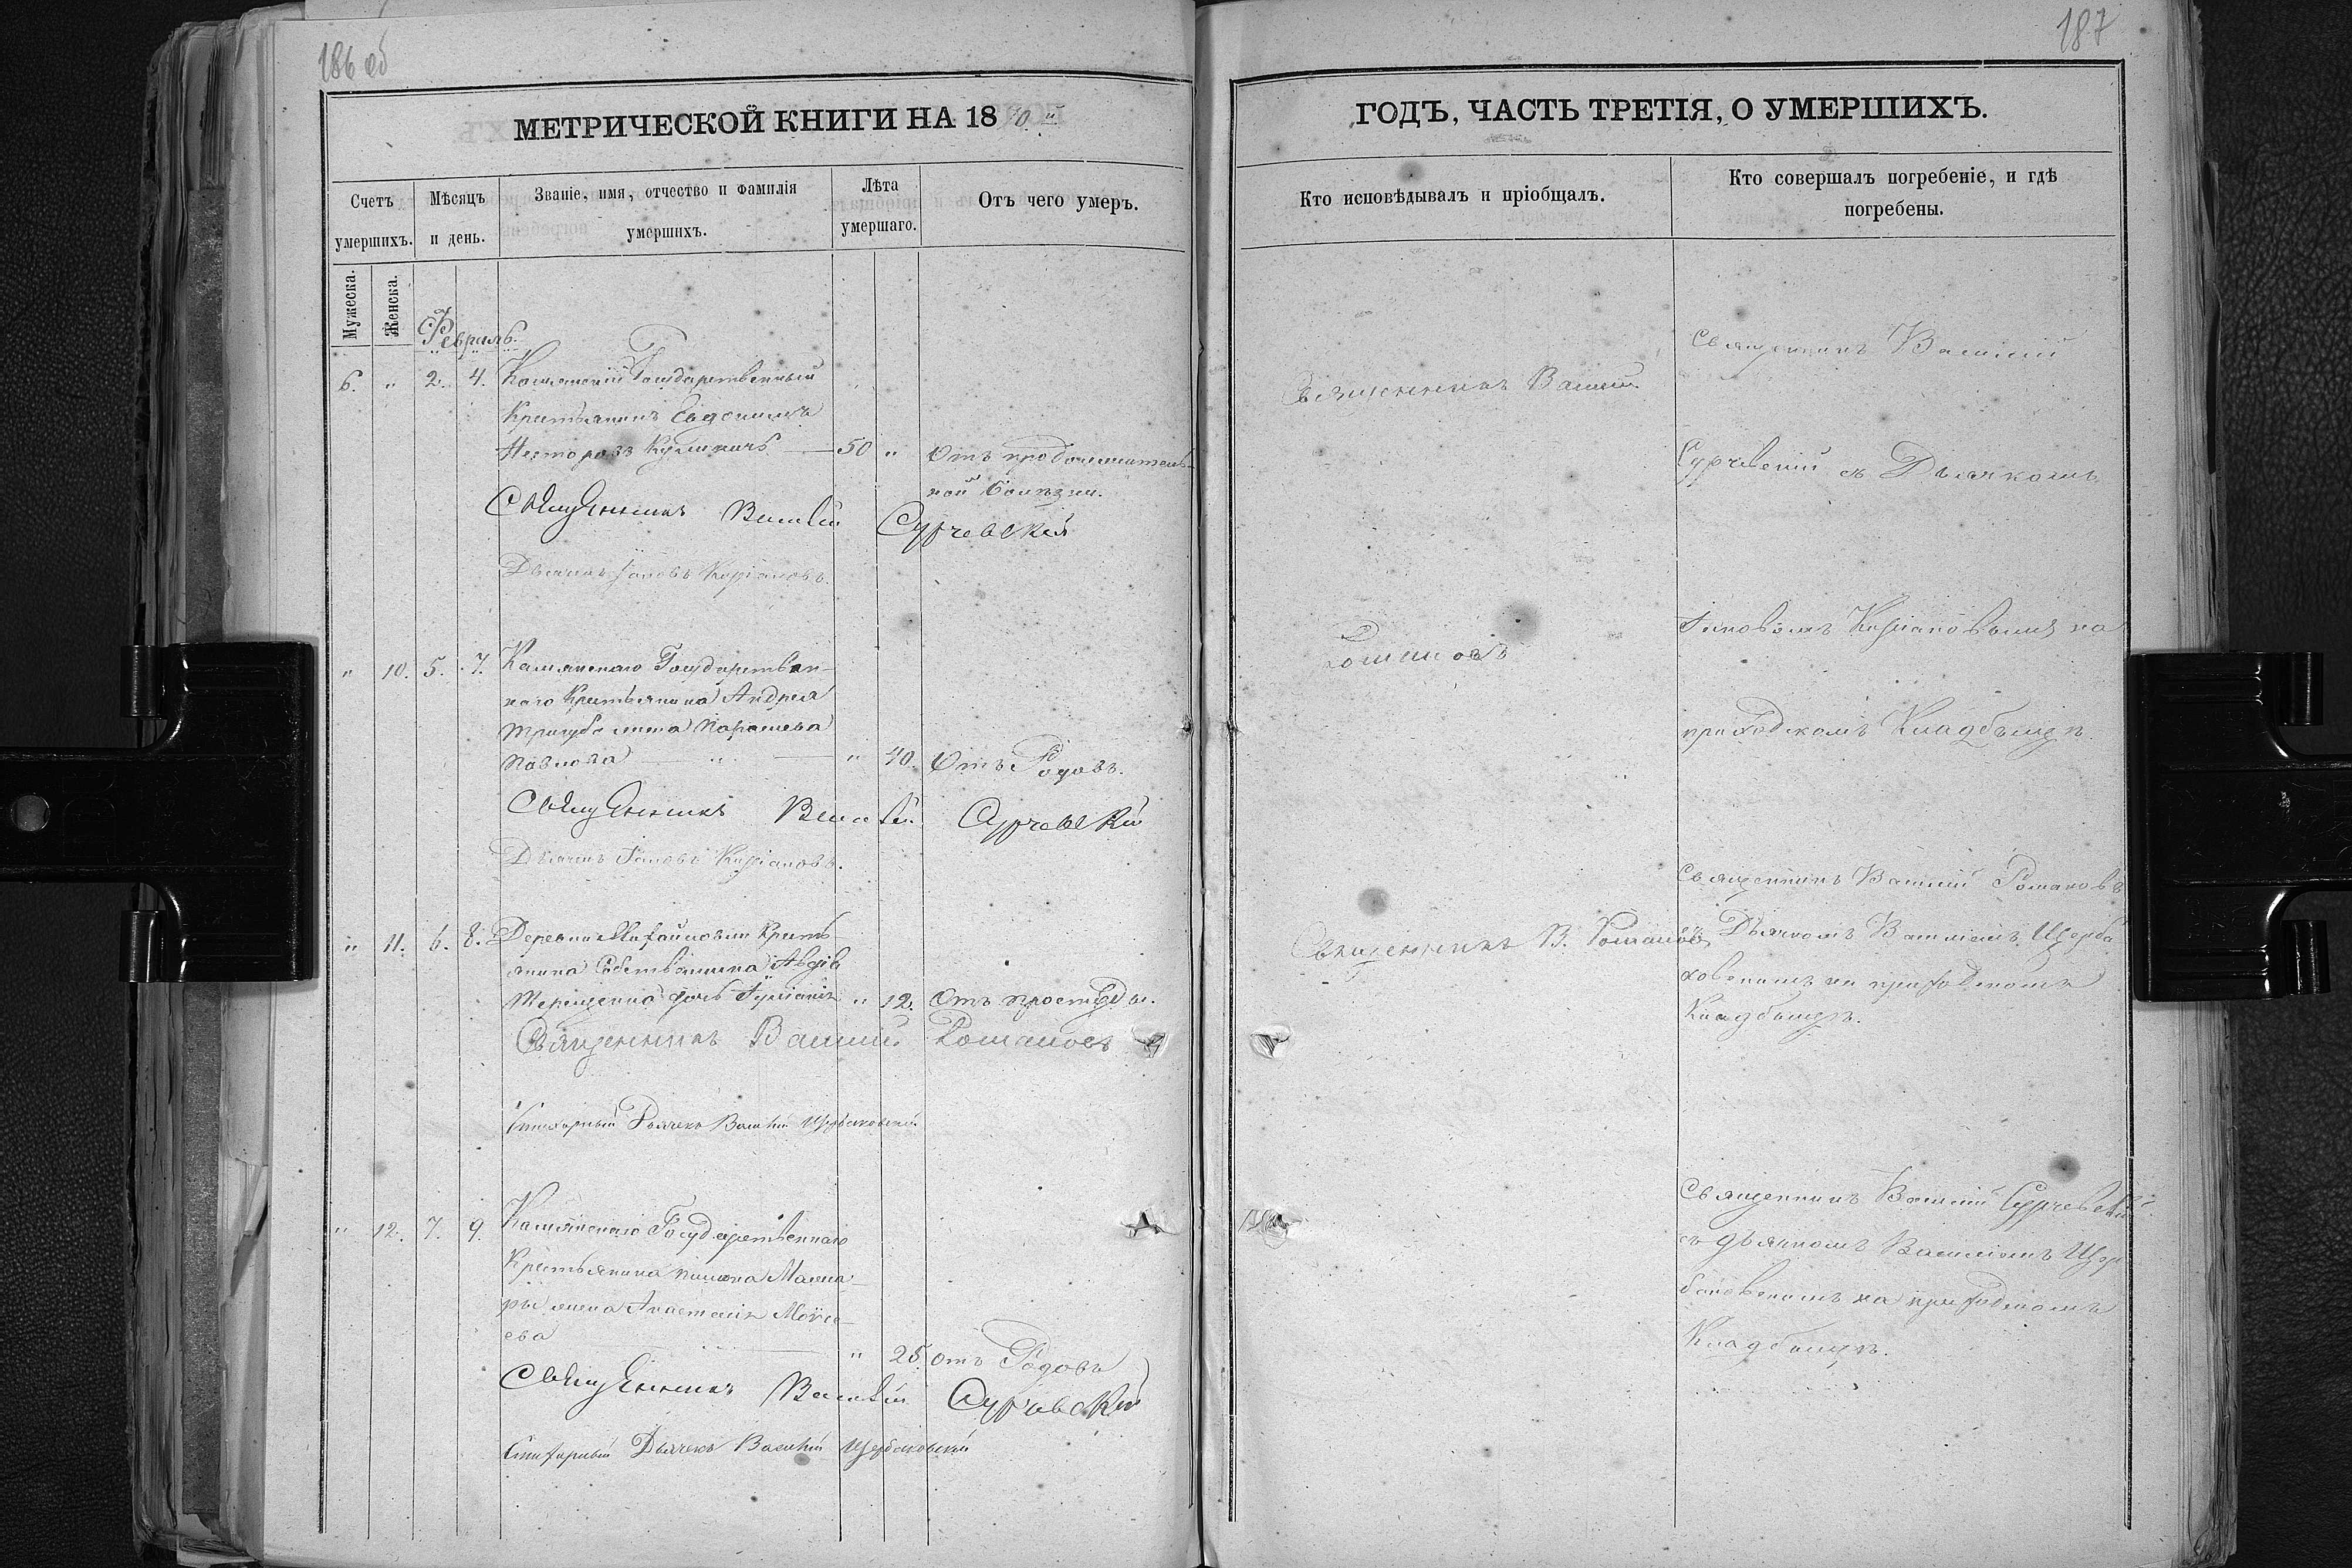 186 об
187
МЕТРИЧЕСКОЙ КНИГИ НА 1870
ГОДЪ, ЧАСТЬ ТРЕТІЯ, О УМЕРШИХЪ.
Счетъ умершихъ.
Мѣсяцъ и день.
Званіе, имя, отчество и фамилія умершихъ.
Лѣта умершаго.
Отъ чего умеръ.
Кто исповѣдывалъ и пріобщалъ.
Кто совершалъ погребеніе, и гдѣ погребены.
Мужеска.
Женска.
Февраль.
6. " 2. 4. Государственный
Крестьянинъ Евдокимъ
Несторовъ 50 " Отъ продолжитель-
ной болѣзни.
Священникъ Василій Сурчевскій
Дьячекъ Іаковъ
" 10. 5. 7. Государствен-
наго Крестьянина Андрея
жена
Павлова " 40. Отъ Родовъ.
Священникъ Василій Сурчевскій
Дьячекъ Іаковъ
" 11. 6. 8. Деревни Михайловки Кресть-
янина Собственника
Терещенка дочь Іуліанія " 12. Отъ простуды.
Священникъ Василій Романовъ
Стихарный Дьячекъ Василій Щербаковскій
" 12. 7. 9. Государственнаго
Крестьянина
жена Анастасія Моусе-
ева " 25. Отъ Родовъ
Священникъ Василій Сурчевскій
Стихарный Дьячекъ Василій Щербаковскій
Священникъ Василій
Романовъ
Священникъ В. Романовъ
Священникъ Василій
Сурчевскій съ Дьячкомъ
Іаковомъ на
приходскомъ Кладбищѣ.
Священникъ Василій Романовъ
Дьячкомъ Василіемъ Щерба
ковскимъ на приходскомъ
Кладбищѣ.
Священникъ Василій Сурчевскій
съ дьячкомъ Василіемъ Щер
баковскимъ на приходскомъ
Кладбищѣ.